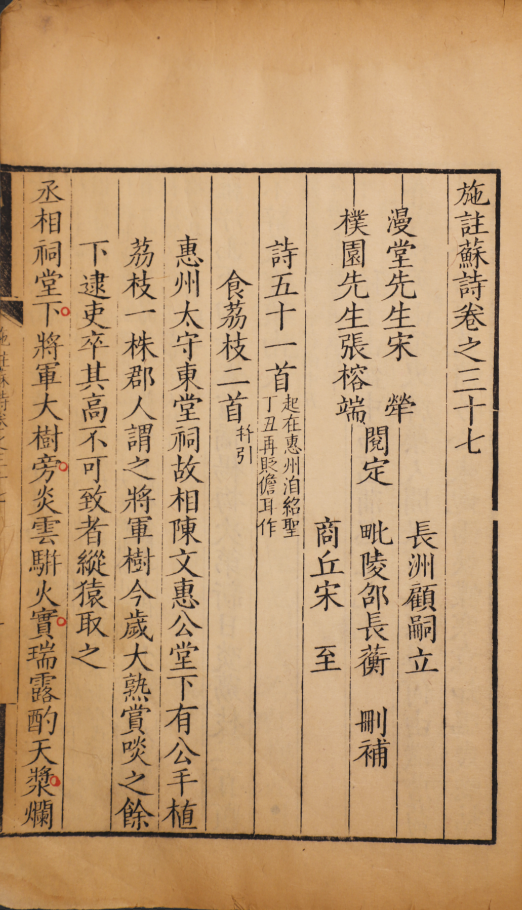 施註蘇詩卷之三十七
長洲顧嗣立
漫堂先生宋犖
閱定
毗陵邵長蘅
刪補
樸園先生張榕端
商丘宋至
詩五十一首
起在惠州洎紹聖
丁丑再貶儋耳作
食荔枝二首
并引
惠州太守東堂祠故相陳文惠公堂下有公手植
荔枝一株郡人謂之將軍樹今歲大熟賞啖之餘
下逮吏卒其高不可致者縱猿取之
丞相祠堂下將軍大樹旁炎雲駢火實瑞露酌天漿爛